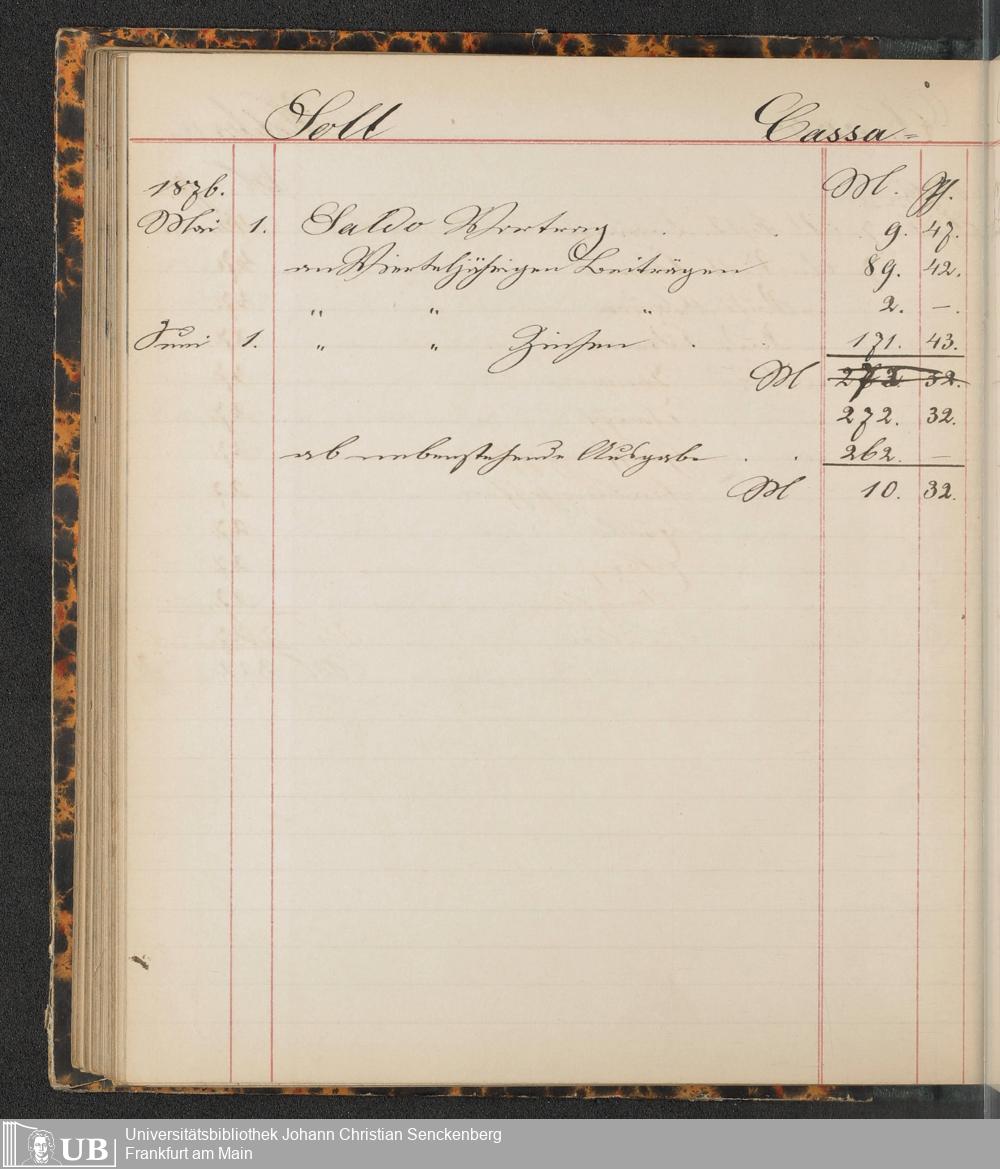 Soll Cassa-
1876. M. Pf.
Mai 1. Saldo Vortrag . . 9. 47.
an Vierteljährigen Beiträgen 89. 42.
" " " 2. —.
Juni 1. " " Zinsen . . 171. 43.
M 272. 32.
272. 32.
ab nebenstehende Ausgabe . . 262. —
M 10. 32.
UB
Universitätsbibliothek Johann Christian Senckenberg
Frankfurt am Main